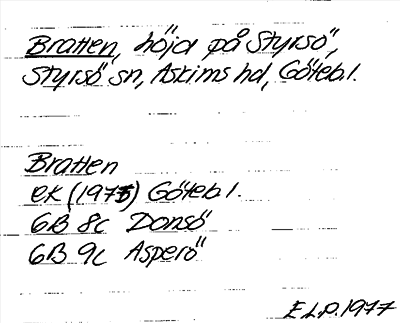 Bratten, höjd på Styrsö,
Styrsö sn, Askims hd, Göteb. l.
Bratten
ek (1975) Göteb. l.
6B 8c Donsö
6B 9c Asperö
E.L.P. 1977